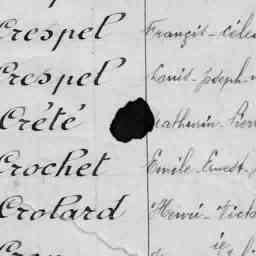 Crespel François-Céles
Crespel Louis-Joseph
Crété Mathurin-Pierr
Crochet Émile-Ernest-
Crolard Henri-Victo